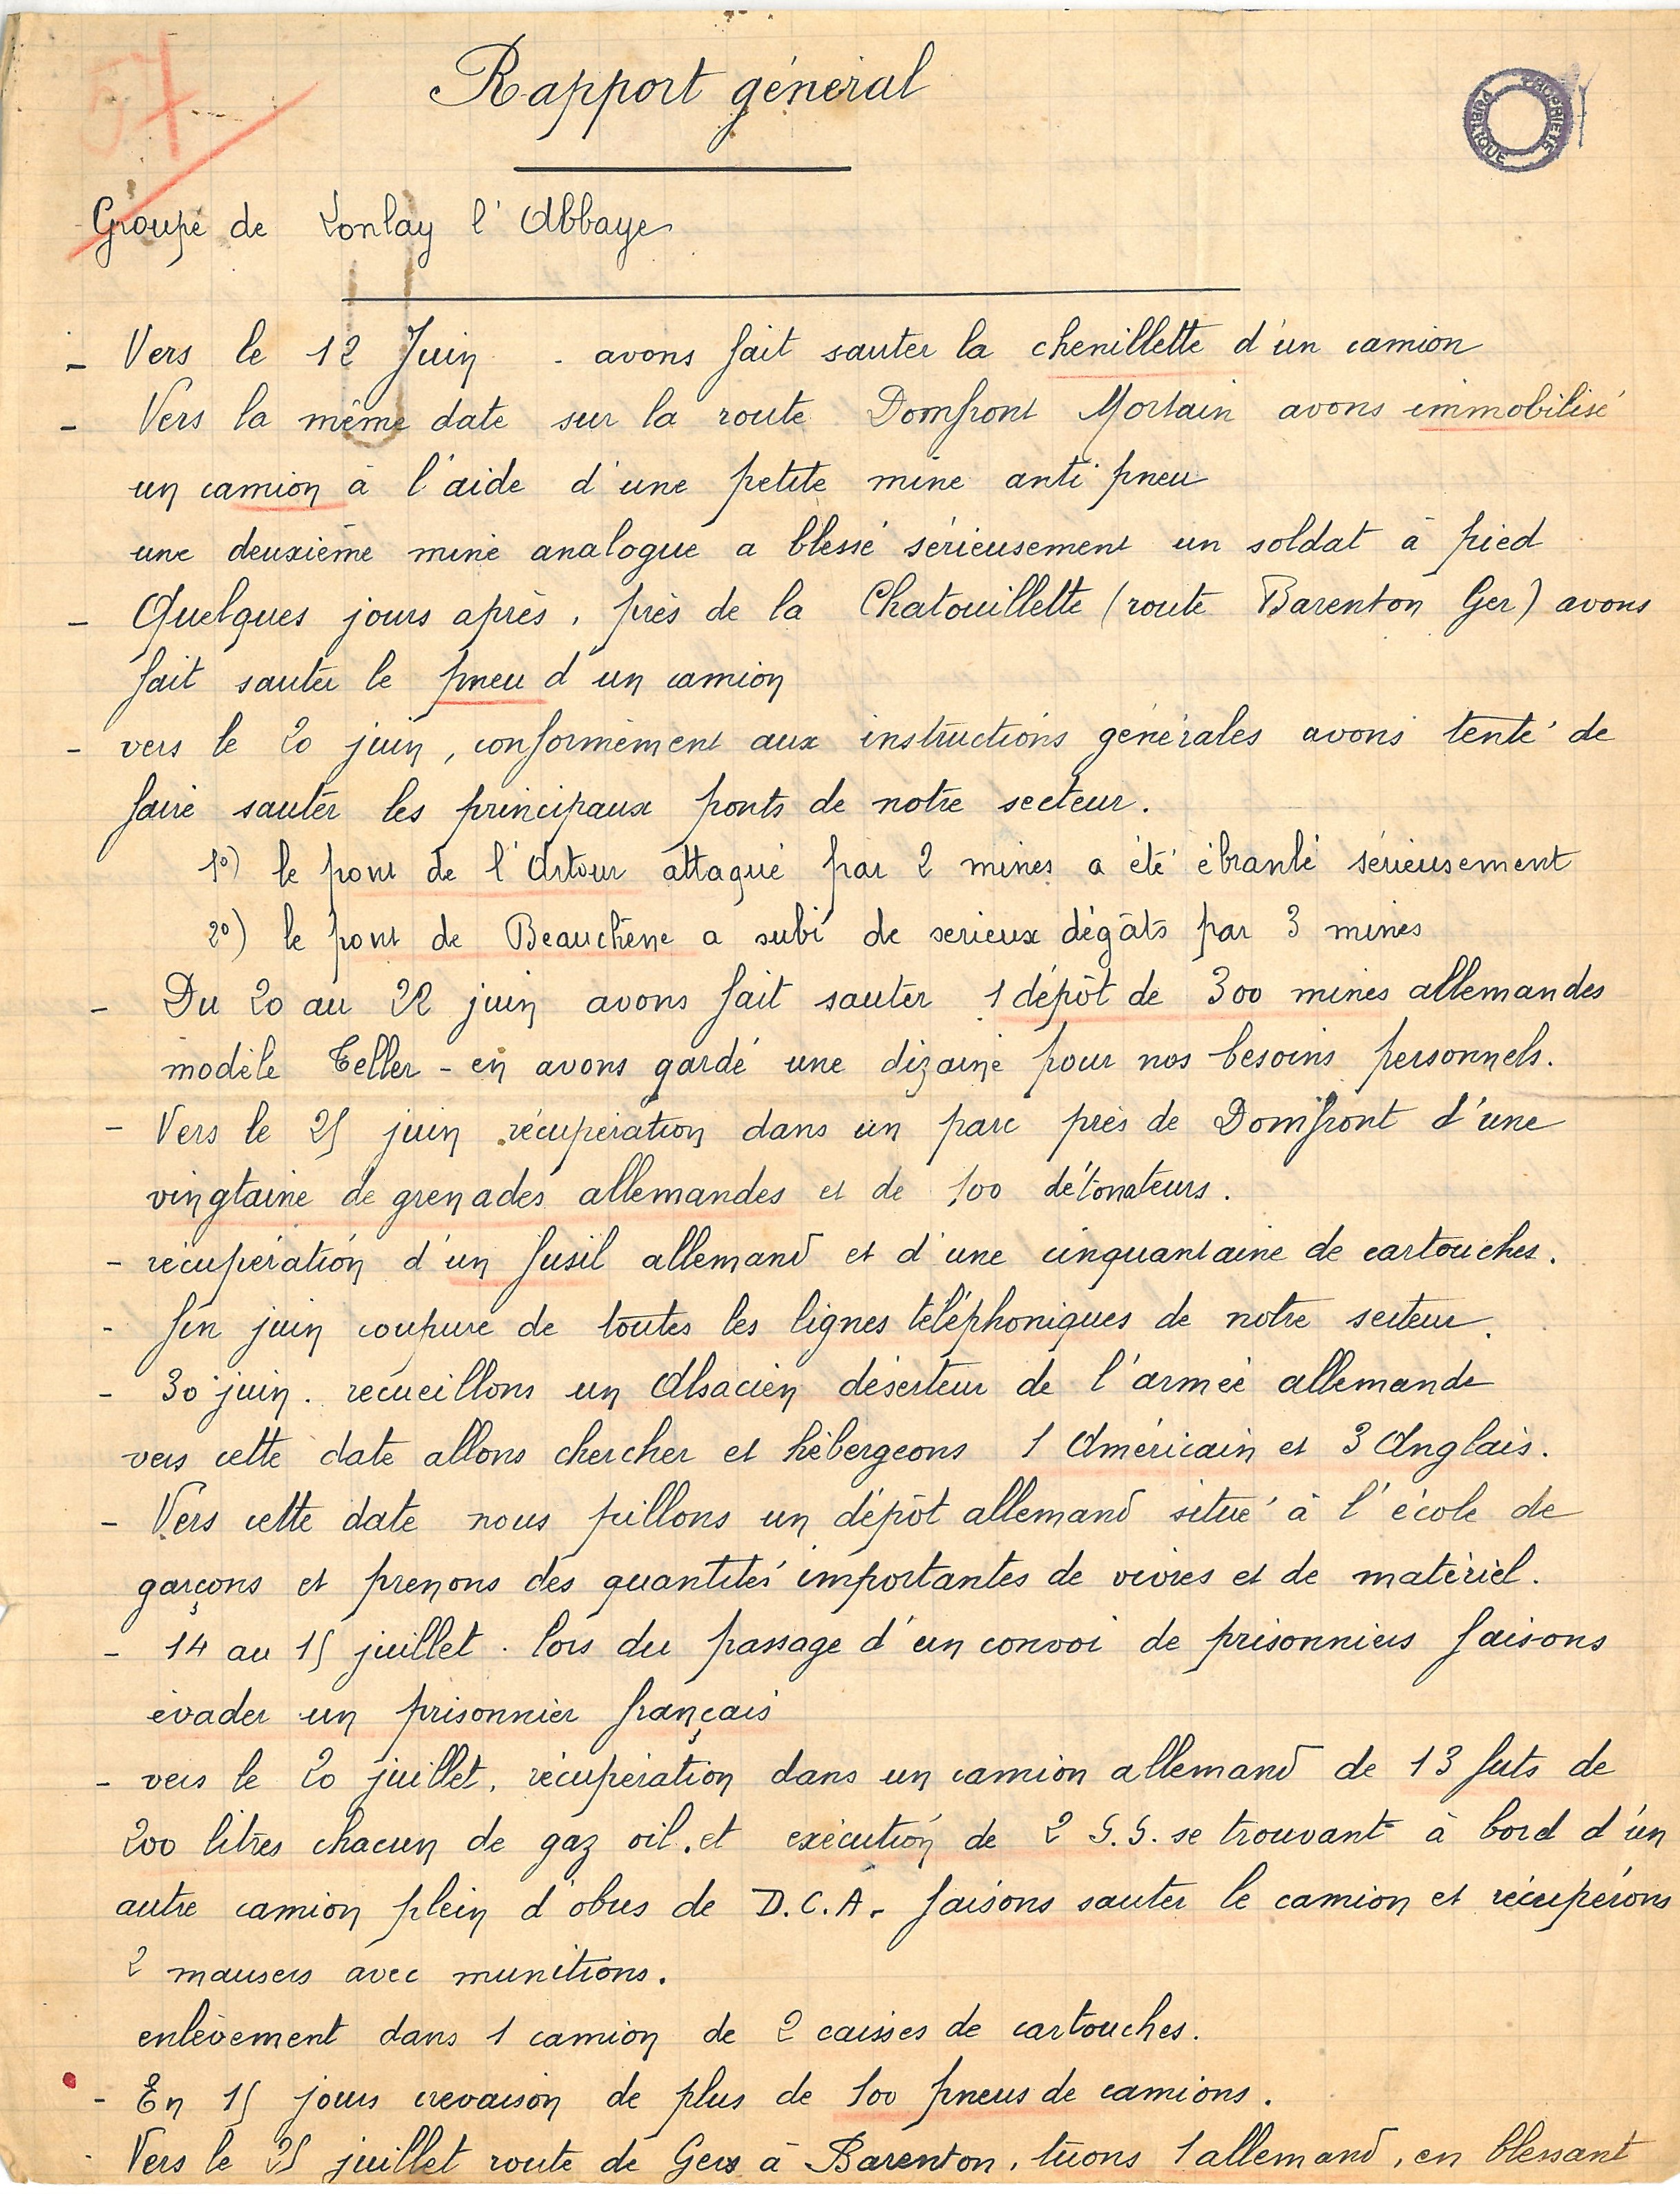 57
Rapport général
PROPRIETE PUBLIQUE
Groupe de Lonlay l'Abbaye
- Vers le 12 Juin - avons fait sauter la chenillette d'un camion
- Vers la même date sur la route Domfront Mortain avons immobilisé
un camion à l'aide d'une petite mine anti pneu
une deuxième mine analogue a blessé sérieusement un soldat à pied
- Quelques jours après, près de la Chatouillette (route Barenton Ger) avons
fait sauter le pneu d'un camion
- vers le 20 juin, conformément aux instructions générales avons tenté de
faire sauter les principaux ponts de notre secteur.
1°) le pont de l'Artour attaqué par 2 mines a été ébranlé sérieusement
2°) le pont de Beauchêne a subi de serieux dégâts par 3 mines
- Du 20 au 22 juin avons fait sauter 1 dépôt de 300 mines allemandes
modèle Teller - en avons gardé une dizaine pour nos besoins personnels.
- Vers le 25 juin récupération dans un parc près de Domfront d'une
vingtaine de grenades allemandes et de 100 détonateurs.
- récupération d'un fusil allemand et d'une cinquantaine de cartouches.
- fin juin coupure de toutes les lignes téléphoniques de notre secteur.
- 30 juin. recueillons un Alsacien déserteur de l'armée allemande
vers cette date allons chercher et hébergeons 1 Américain et 3 Anglais.
- Vers cette date nous pillons un dépôt allemand situé à l'école de
garçons et prenons des quantités importantes de vivres et de matériel.
- 14 au 15 juillet. lors du passage d'un convoi de prisonniers faisons
évader un prisonnier français
- vers le 20 juillet, récupération dans un camion allemand de 13 futs de
200 litres chacun de gaz oil. et exécution de 2 S.S. se trouvant à bord d'un
autre camion plein d'obus de D.C.A. faisons sauter le camion et récupérons
2 mausers avec munitions.
enlèvement dans 1 camion de 2 caisses de cartouches.
- En 15 jours crevaison de plus de 100 pneus de camions.
- Vers le 25 juillet route de Gers à Barenton, tuons 1 allemand, en blessant